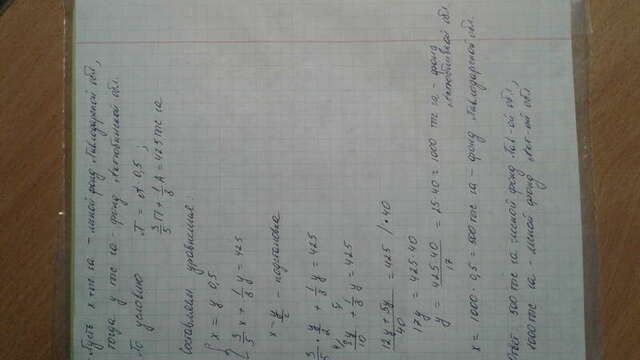 Пусть x тыс га - лесной фонд Павлодарской обл,
тогда y тыс га - фонд Актюбинской обл.
По условию П = A 0,5 ;
3/5 П + 1/8 A = 425 тыс га
Составляем уравнения:
{ x = y 0,5
{ 3/5 x + 1/8 y = 425
x = y/2 - подстановка
3/5 · y/2 + 1/8 y = 425
3y/10 + 1/8 y = 425
12y + 5y / 40 = 425 / · 40
17y = 425 40
y = 425 40 / 17 = 25 40 = 1000 тыс га - фонд Актюбинской обл.
x = 1000 · 0,5 = 500 тыс га - фонд Павлодарской обл.
Ответ: 500 тыс га лесной фонд Пав-ой обл,
1000 тыс га - лесной фонд Акт-ой обл